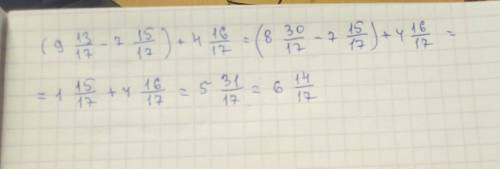 (9 13/17 - 7 15/17) + 4 16/17 = (8 30/17 - 7 15/17) + 4 16/17 =
= 1 15/17 + 4 16/17 = 5 31/17 = 6 14/17